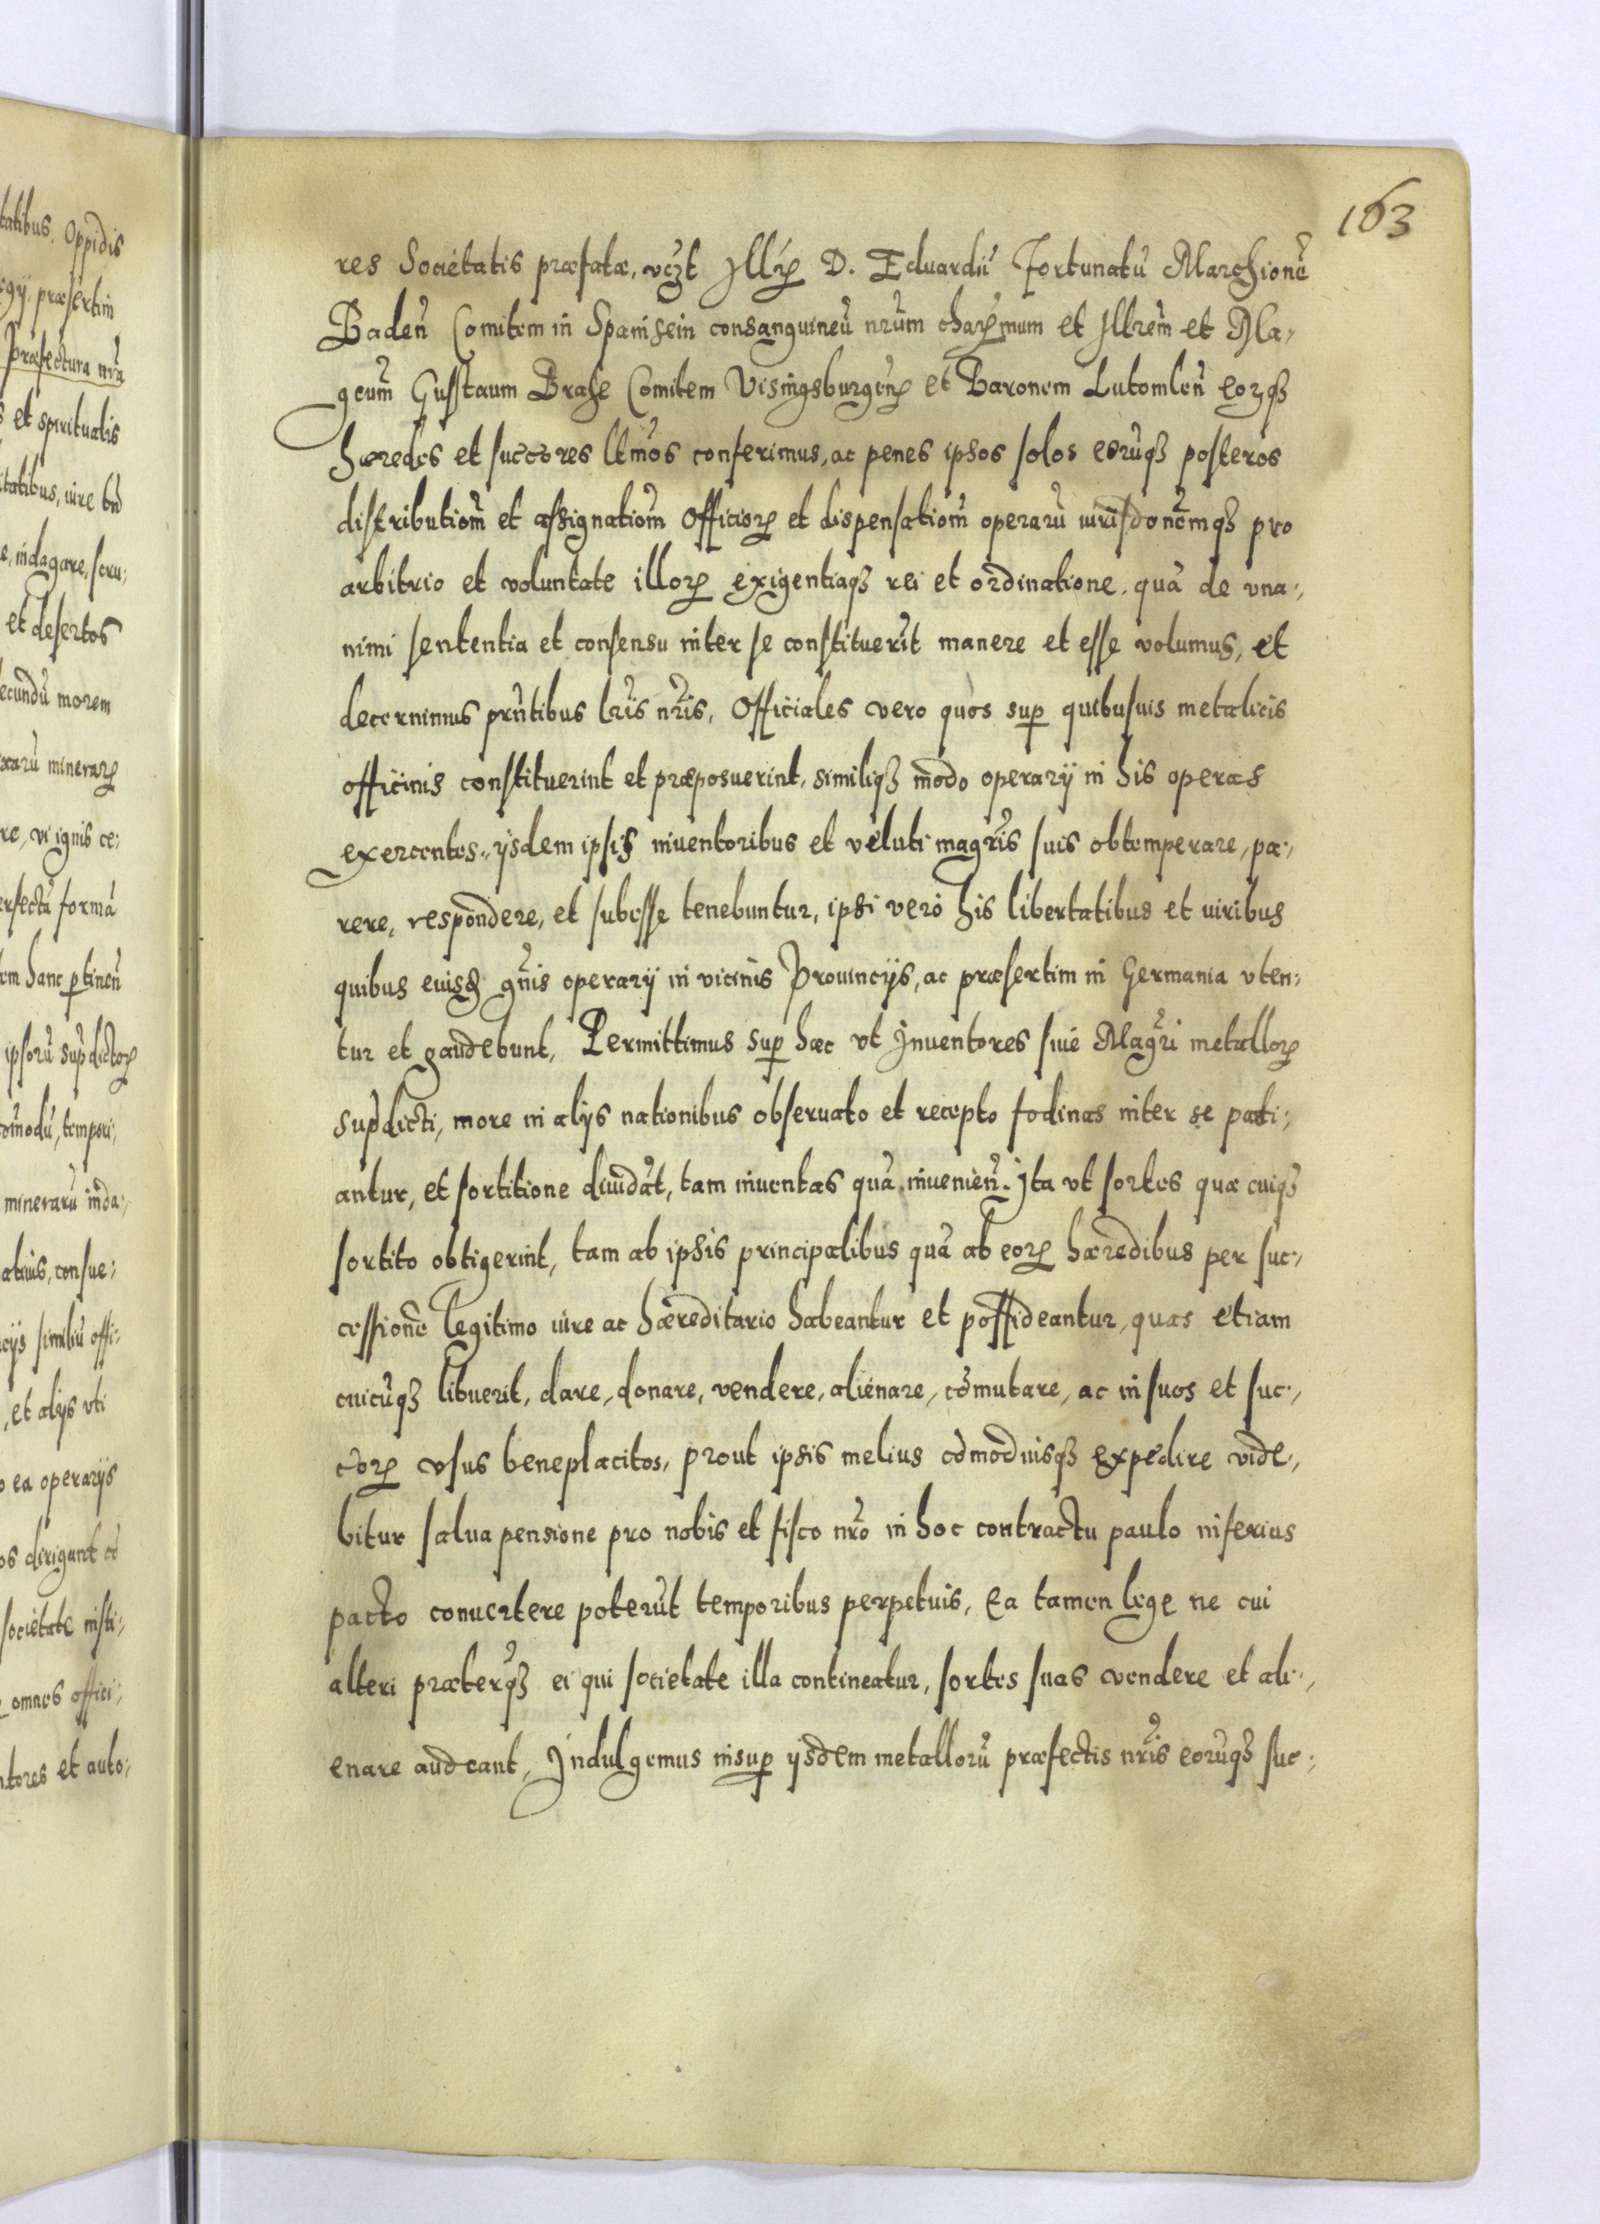 163
res Societatis præfatæ, vczt Illrem D. Eduardũ Fortunatũ Marchionẽ
Baden̄ Comitem in Spanhein consanguineũ nrũm charmum et Illrem̃ et Ma-
gcum̃ Gustaum Brahe Comitem Visingsburgen̄ et Baronem Lutomlen̄ eorq3
hæredes et succores ltmos conferimus, ac penes ipsos solos eorũq3 posteros
distributiom̃ et assignatiom̃ Officior et dispensatiom̃ operarũ iurisdonem̃q3 pro
arbitrio et voluntate illor exigentiaq3 rei et ordinatione, quã de vna-,
nimi sententia et consensu inter se constituerĩt manere et esse volumus, et
decernimus prñtibus lrĩs nrĩs, Officiales vero quos sup quibusuis metalicis
officinis constituerint et præposuerint, similiq3 modo operarij in his operas
exercentes, ijsdem ipsis inuentoribus et veluti magrĩs suis obtemperare, pa-,
rere, respondere, et subesse tenebuntur, ipsi vero his libertatibus et iuribus
quibus eiusd gñis operarij in vicinis Prouincijs, ac præsertim in Germania vten-
tur et gaudebunt, Permittimus sup hæc vt Inuentores siue Magrĩ metallor
supdicti, more in alijs nationibus obseruato et recepto fodinas inter se parti-,
antur, et sortitione diuidãt, tam inuentas quã inuenien̄. Ita vt sortes quæ cuiq3
sortito obtigerint, tam ab ipsis principalibus quã ab eor hæredibus per suc-,
cessionẽ legitimo iure ac hæreditario habeantur et possideantur, quas etiam
cuicũq3 libuerit, dare, donare, vendere, alienare, cõmutare, ac in suos et suc-,
cor vsus beneplacitos, prout ipsis melius cõmodiusq3 expedire vide-,
bitur salua pensione pro nobis et fisco nrõ in hoc contractu paulo inferius
pacto conuertere poterũt temporibus perpetuis, Ea tamen lege ne cui
alteri præterq3 ei qui societate illa contineatur, sortes suas vendere et ali-,
enare audeant, Indulgemus insup ijsdem metallorũ præfectis nrĩs eorũq3 suc-,